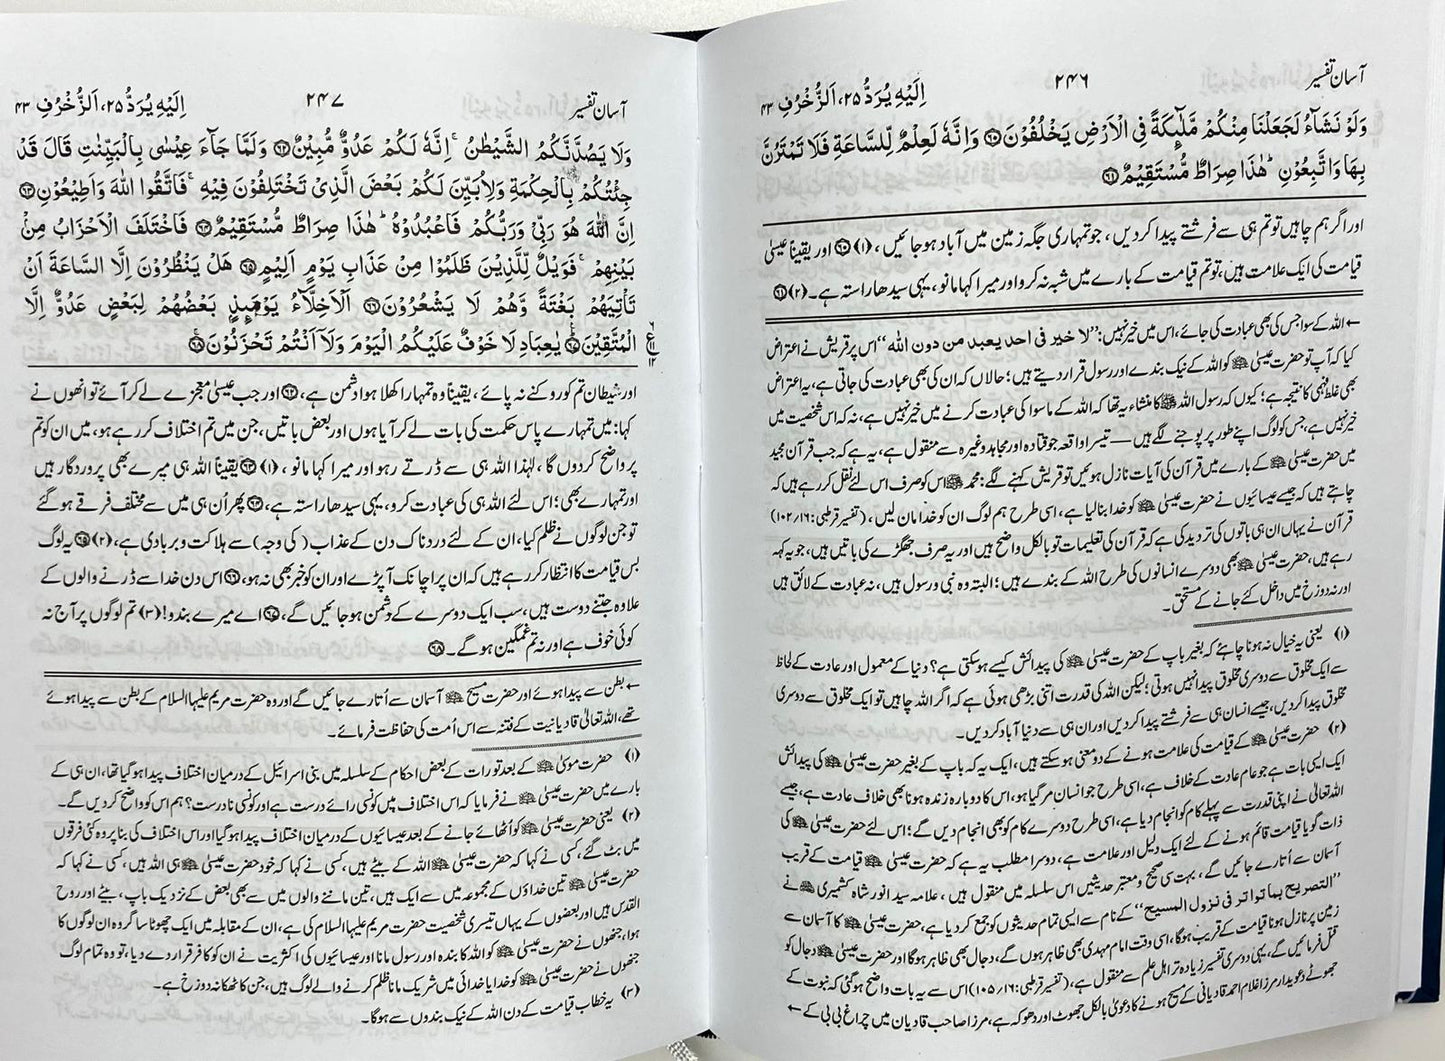 آسان تفسیر
۲۴۶
اِلَيْهِ يُرَدُّ ۲۵، اَلزُّخْرُف ۴۳
وَلَوْ نَشَآءُ لَجَعَلْنَا مِنْكُمْ مَّلٰٓئِكَةً فِى الْاَرْضِ يَخْلُفُوْنَ۝۶۰ وَاِنَّهٗ لَعِلْمٌ لِّلسَّاعَةِ فَلَا تَمْتَرُنَّ
بِهَا وَاتَّبِعُوْنِ ؕ هٰذَا صِرَاطٌ مُّسْتَقِيْمٌ۝۶۱
اور اگر ہم چاہیں تو تم ہی سے فرشتے پیدا کر دیں ، جو تمہاری جگہ زمین میں آباد ہو جائیں ، (۱) ۶۰ اور یقیناً عیسیٰ
قیامت کی ایک علامت ہیں، تو تم قیامت کے بارے میں شبہ نہ کرو اور میرا کہا مانو ، یہی سیدھا راستہ ہے۔ (۲) ۶۱
← اللہ کے سوا جس کی بھی عبادت کی جائے، اس میں خیر نہیں: ’’لا خير فى احد يعبد من دون الله‘‘ اس پر قریش نے اعتراض
کیا کہ آپ تو حضرت عیسیٰ علیہ السلام کو اللہ کے نیک بندے اور رسول قرار دیتے ہیں؛ حالاں کہ ان کی بھی عبادت کی جاتی ہے، یہ اعتراض
بھی غلط فہمی کا نتیجہ ہے؛ کیوں کہ رسول اللہ ﷺ کا منشاء یہ تھا کہ اللہ کے ماسوا کی عبادت کرنے میں خیر نہیں ہے، نہ کہ اس شخصیت میں
خیر نہیں ہے، جس کو لوگ اپنے طور پر پوجنے لگے ہیں — تیسرا واقعہ جو قتادہ اور مجاہد وغیرہ سے منقول ہے، یہ ہے کہ جب قرآن مجید
میں حضرت عیسیٰ علیہ السلام کے بارے میں قرآن کی آیات نازل ہوئیں تو قریش کہنے لگے: محمد ﷺ اس کو صرف اس لئے نقل کر رہے ہیں کہ
چاہتے ہیں کہ جیسے عیسائیوں نے حضرت عیسیٰ علیہ السلام کو خدا بنالیا ہے، اسی طرح ہم لوگ ان کو خدا مان لیں ، (تفسیر قرطبی:۱۶؍۱۰۲)
قرآن نے یہاں ان ہی باتوں کی تردید کی ہے کہ قرآن کی تعلیمات تو بالکل واضح ہیں اور یہ صرف جھگڑے کی باتیں ہیں، جو یہ کہہ
رہے ہیں، حضرت عیسیٰ علیہ السلام بھی دوسرے انسانوں کی طرح اللہ کے بندے ہیں؛ البتہ وہ نبی و رسول ہیں، نہ عبادت کے لائق ہیں
اور نہ دوزخ میں داخل کئے جانے کے مستحق ۔
(۱) یعنی یہ خیال نہ ہونا چاہئے کہ بغیر باپ کے حضرت عیسیٰ علیہ السلام کی پیدائش کیسے ہوسکتی ہے؟ دنیا کے معمول اور عادت کے لحاظ
سے ایک مخلوق سے دوسری مخلوق پیدا نہیں ہوتی؛ لیکن اللہ کی قدرت اتنی بڑھی ہوئی ہے کہ اگر اللہ چاہیں تو ایک مخلوق سے دوسری
مخلوق پیدا کر دیں، جیسے انسان ہی سے فرشتے پیدا کر دیں اور ان ہی سے دنیا آباد کر دیں۔
(۲) حضرت عیسیٰ علیہ السلام کے قیامت کی علامت ہونے کے دو معنی ہوسکتے ہیں، ایک یہ کہ باپ کے بغیر حضرت عیسیٰ علیہ السلام کی پیدائش
ایک ایسی بات ہے جو عام عادت کے خلاف ہے، اسی طرح جو انسان مر گیا ہو، اس کا دوبارہ زندہ ہونا بھی خلاف عادت ہے، جیسے
اللہ تعالیٰ نے اپنی قدرت سے پہلے کام کو انجام دیا ہے، اسی طرح دوسرے کام کو بھی انجام دیں گے؛ اس لئے حضرت عیسیٰ علیہ السلام کی
ذات گویا قیامت قائم ہونے کے لئے ایک دلیل اور علامت ہے، دوسرا مطلب یہ ہے کہ حضرت عیسیٰ علیہ السلام قیامت کے قریب
آسمان سے اُتارے جائیں گے، بہت سی صحیح و معتبر حدیثیں اس سلسلہ میں منقول ہیں، علامہ سید انور شاہ کشمیری نے
’’التصريح بما تواتر فى نزول المسيح‘‘ کے نام سے ایسی تمام حدیثوں کو جمع کر دیا ہے، حضرت عیسیٰ علیہ السلام کا آسمان سے
زمین پر نازل ہونا قیامت کے قریب ہوگا، اسی وقت امام مہدی بھی ظاہر ہوں گے، دجال بھی ظاہر ہوگا اور حضرت عیسیٰ علیہ السلام دجال کو
قتل فرمائیں گے، یہی دوسری تفسیر زیادہ تر اہل علم سے منقول ہے، (تفسیر قرطبی:۱۶؍۱۰۵) اس سے یہ بات واضح ہوگئی کہ نبوت کے
جھوٹے دعویدار مرزا غلام احمد قادیانی کے مسیح ہونے کا دعویٰ بالکل جھوٹ اور دھوکہ ہے، مرزا صاحب قادیان میں چراغ بی بی کے ←
آسان تفسیر
۲۴۷
اِلَيْهِ يُرَدُّ ۲۵، اَلزُّخْرُف ۴۳
وَلَا يَصُدَّنَّكُمُ الشَّيْطٰنُ ۚ اِنَّهٗ لَكُمْ عَدُوٌّ مُّبِيْنٌ۝۶۲ وَلَمَّا جَآءَ عِيْسٰى بِالْبَيِّنٰتِ قَالَ قَدْ
جِئْتُكُمْ بِالْحِكْمَةِ وَلِاُبَيِّنَ لَكُمْ بَعْضَ الَّذِىْ تَخْتَلِفُوْنَ فِيْهِ ۚ فَاتَّقُوا اللّٰهَ وَاَطِيْعُوْنِ۝۶۳
اِنَّ اللّٰهَ هُوَ رَبِّىْ وَرَبُّكُمْ فَاعْبُدُوْهُ ؕ هٰذَا صِرَاطٌ مُّسْتَقِيْمٌ۝۶۴ فَاخْتَلَفَ الْاَحْزَابُ مِنْۢ
بَيْنِهِمْ ۚ فَوَيْلٌ لِّلَّذِيْنَ ظَلَمُوْا مِنْ عَذَابِ يَوْمٍ اَلِيْمٍ۝۶۵ هَلْ يَنْظُرُوْنَ اِلَّا السَّاعَةَ اَنْ
تَاْتِيَهُمْ بَغْتَةً وَّهُمْ لَا يَشْعُرُوْنَ۝۶۶ اَلْاَخِلَّآءُ يَوْمَئِذٍۭ بَعْضُهُمْ لِبَعْضٍ عَدُوٌّ اِلَّا
الْمُتَّقِيْنَ۝۶۷ يٰعِبَادِ لَا خَوْفٌ عَلَيْكُمُ الْيَوْمَ وَلَآ اَنْتُمْ تَحْزَنُوْنَ۝۶۸
اور شیطان تم کو روکنے نہ پائے ، یقیناً وہ تمہارا کھلا ہوا دشمن ہے، ۶۲ اور جب عیسیٰ معجزے لے کر آئے تو انھوں نے
کہا: میں تمہارے پاس حکمت کی بات لے کر آیا ہوں اور بعض باتیں ، جن میں تم اختلاف کر رہے ہو، میں ان کو تم
پر واضح کردوں گا ، لہٰذا اللہ ہی سے ڈرتے رہو اور میرا کہا مانو ، (۱) ۶۳ یقیناً اللہ ہی میرے بھی پروردگار ہیں
اور تمہارے بھی؛ اس لئے اللہ ہی کی عبادت کرو، یہی سیدھا راستہ ہے، ۶۴ پھر اُن ہی میں سے مختلف فرقے ہو گئے
تو جن لوگوں نے ظلم کیا، ان کے لئے دردناک دن کے عذاب ( کی وجہ) سے ہلاکت و بربادی ہے، (۲) ۶۵ یہ لوگ
بس قیامت کا انتظار کر رہے ہیں کہ ان پر اچانک آپڑے اور ان کو خبر بھی نہ ہو، ۶۶ اس دن خدا سے ڈرنے والوں کے
علاوہ جتنے دوست ہیں، سب ایک دوسرے کے دشمن ہو جائیں گے، ۶۷ اے میرے بندو! (۳) تم لوگوں پر آج نہ
کوئی خوف ہے اور نہ تم غمگین ہوگے ۔ ۶۸
← بطن سے پیدا ہوئے اور حضرت مسیح علیہ السلام آسمان سے اُتارے جائیں گے اور وہ حضرت مریم علیہا السلام کے بطن سے پیدا ہوئے
تھے، اللہ تعالیٰ قادیانیت کے فتنہ سے اس اُمت کی حفاظت فرمائے۔
(۱) حضرت موسیٰ علیہ السلام کے بعد تورات کے بعض احکام کے سلسلہ میں بنی اسرائیل کے درمیان اختلاف پیدا ہوگیا تھا، ان ہی کے
بارے میں حضرت عیسیٰ علیہ السلام نے فرمایا کہ اس اختلاف میں کونسی رائے درست ہے اور کونسی نا درست؟ ہم اس کو واضح کر دیں گے۔
(۲) یعنی حضرت عیسیٰ علیہ السلام کو اُٹھائے جانے کے بعد عیسائیوں کے درمیان اختلاف پیدا ہوگیا اور اس اختلاف کی بنا پر وہ کئی فرقوں
میں بٹ گئے، کسی نے کہا کہ حضرت عیسیٰ علیہ السلام اللہ کے بیٹے ہیں، کسی نے کہا کہ خود حضرت عیسیٰ علیہ السلام ہی اللہ ہیں، کسی نے کہا کہ
حضرت عیسیٰ علیہ السلام تین خداؤں کے مجموعہ میں سے ایک ہیں، تین ماننے والوں میں سے بھی بعض کے نزدیک باپ، بیٹے اور روح
القدس ہیں اور بعضوں کے یہاں تیسری شخصیت حضرت مریم علیہا السلام کی ہے، ان کے مقابلہ میں ایک چھوٹا سا گروہ ان لوگوں کا
ہوا، جنھوں نے حضرت عیسیٰ علیہ السلام کو اللہ کا بندہ اور رسول مانا اور عیسائیوں کی اکثریت نے ان کو کافر قرار دے دیا، تو وہ تمام لوگ
جنھوں نے حضرت عیسیٰ علیہ السلام کو خدا یا خدائی میں شریک مانا ظلم کرنے والے لوگ ہیں، جن کا ٹھکانہ دوزخ ہے۔
(۳) یہ خطاب قیامت کے دن اللہ کے نیک بندوں سے ہوگا۔